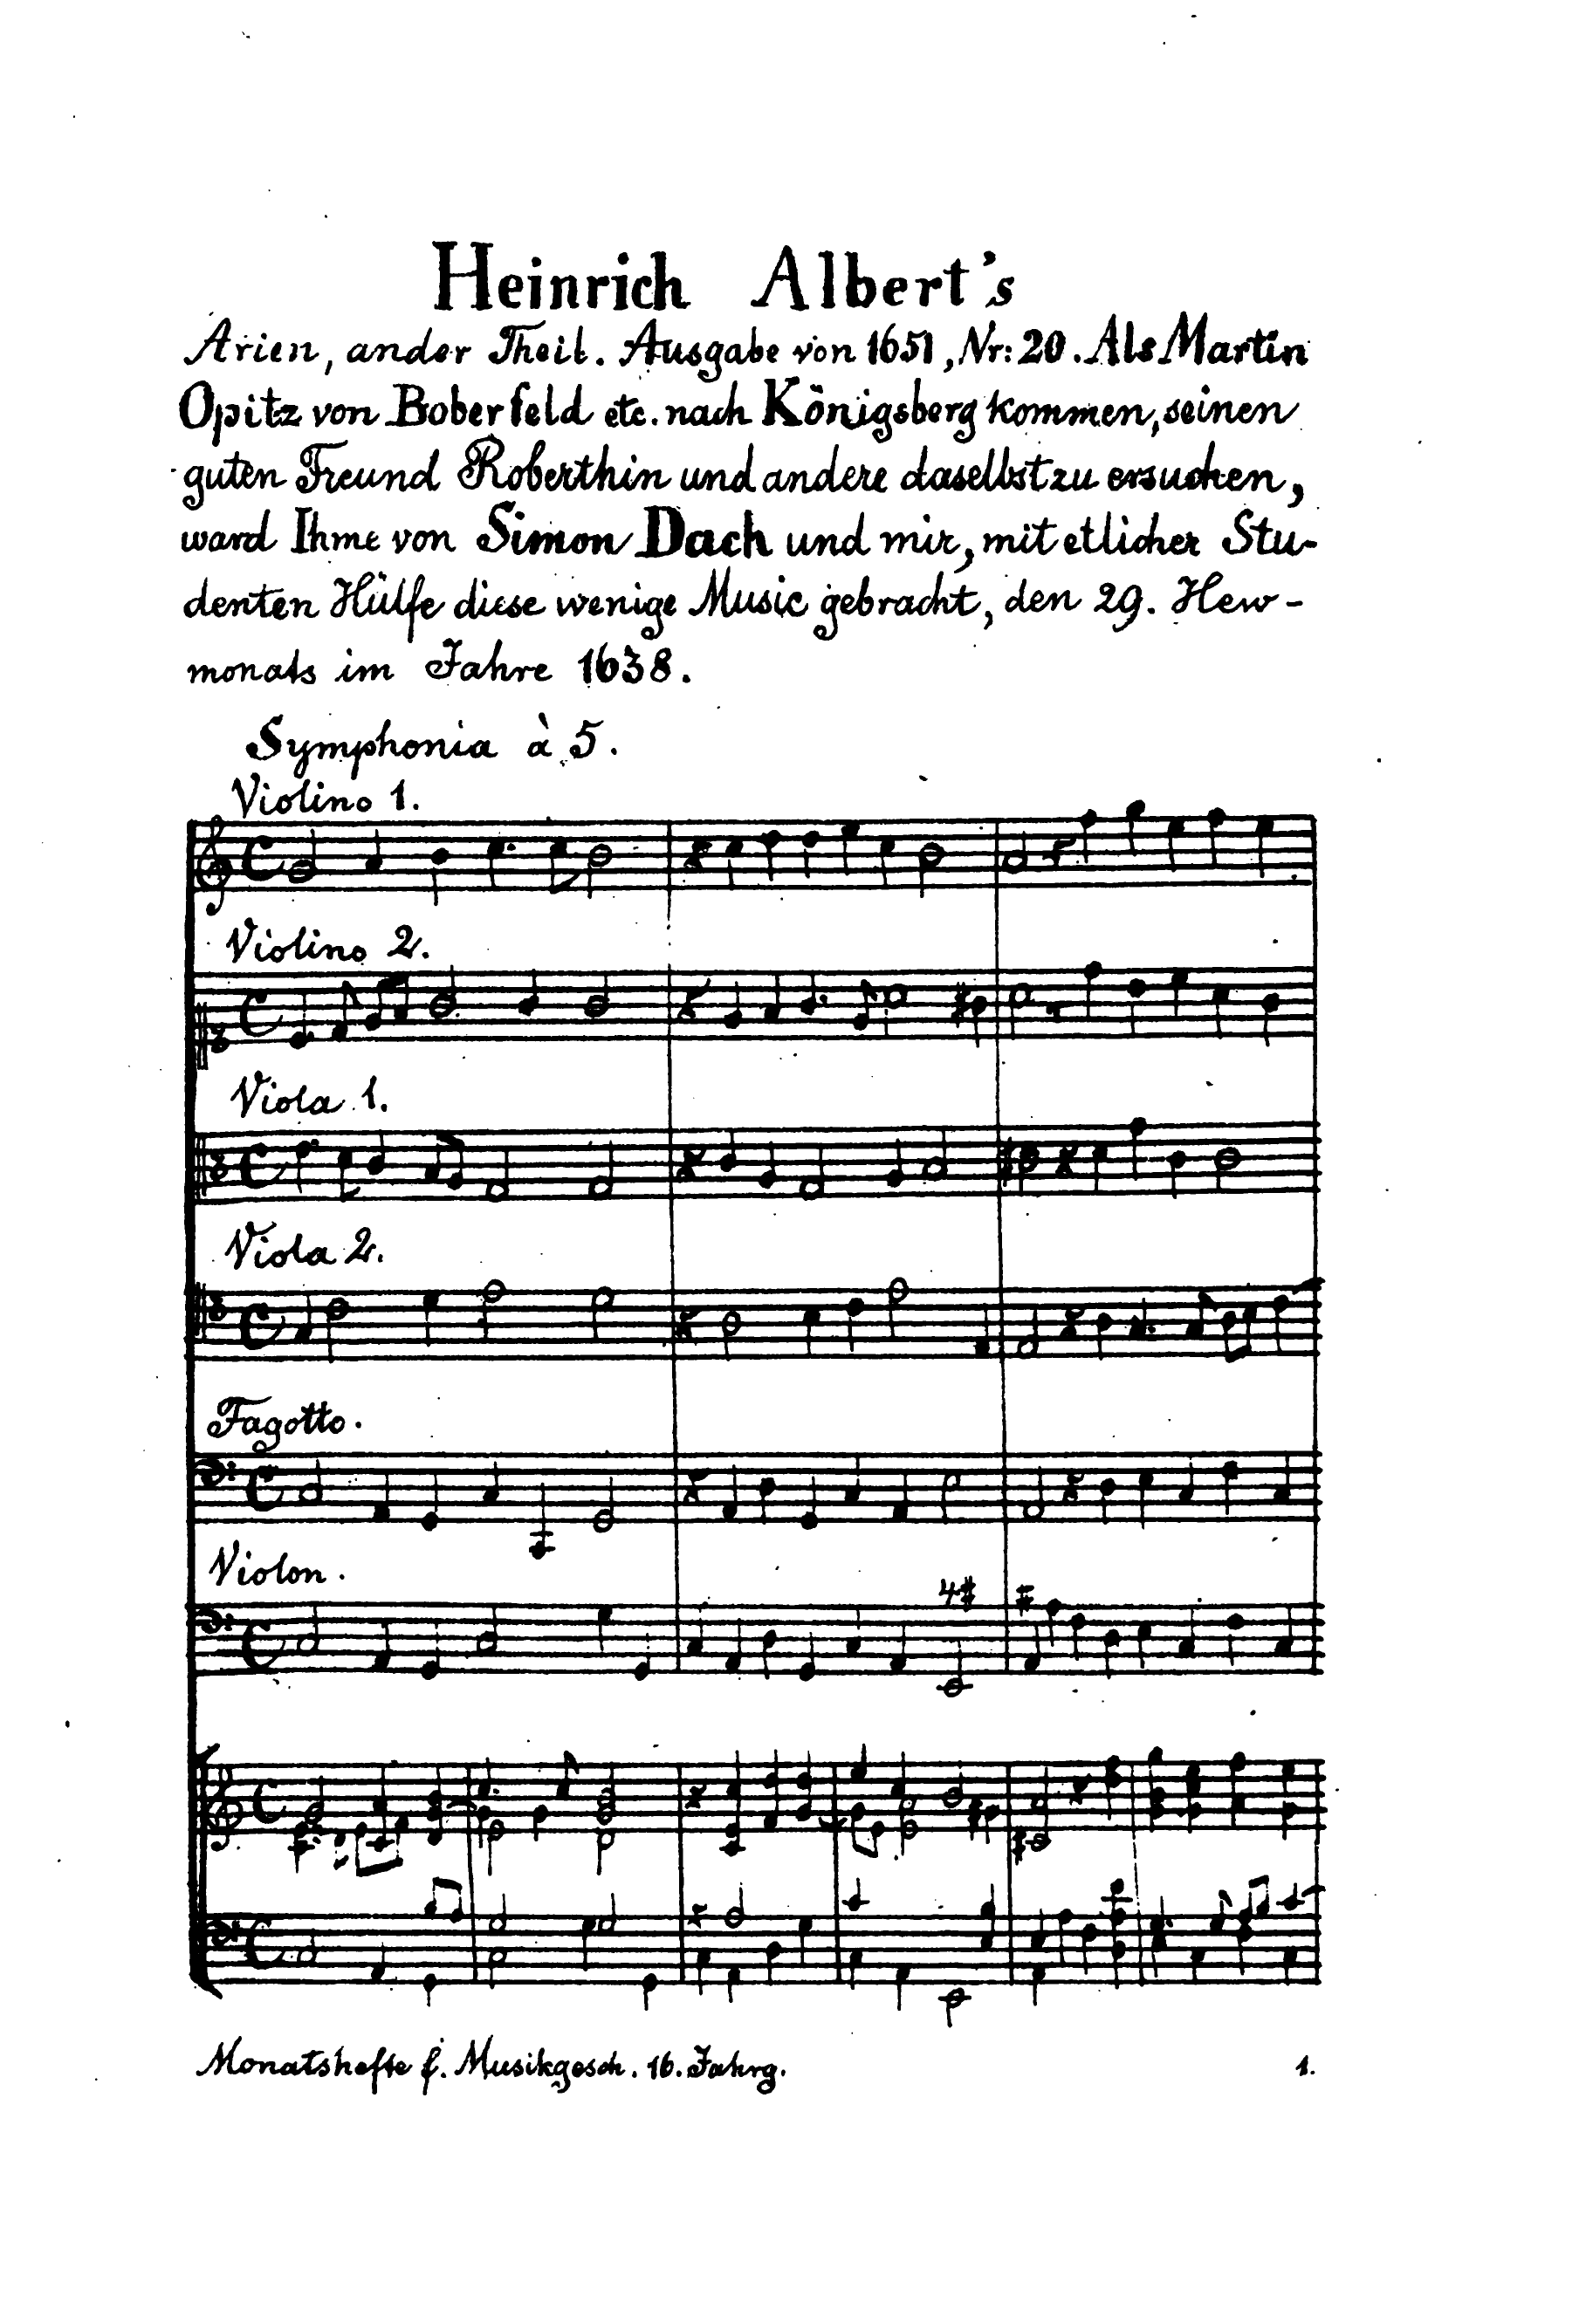 Heinrich Albert's
Arien, ander Theil. Ausgabe von 1651, Nr: 20. Als Martin
Opitz von Boberfeld etc. nach Königsberg kommen, seinen
guten Freund Roberthin und andere daselbst zu ersuchen,
ward Ihme von Simon Dach und mir, mit etlicher Stu-
denten Hülfe diese wenige Music gebracht, den 29. Hew-
monats im Jahre 1638.
Symphonia à 5.
Violino 1.
Violino 2.
Viola 1.
Viola 2.
Fagotto.
Violon.
4#
#
Monatshefte f. Musikgesch. 16. Jahrg. 1.